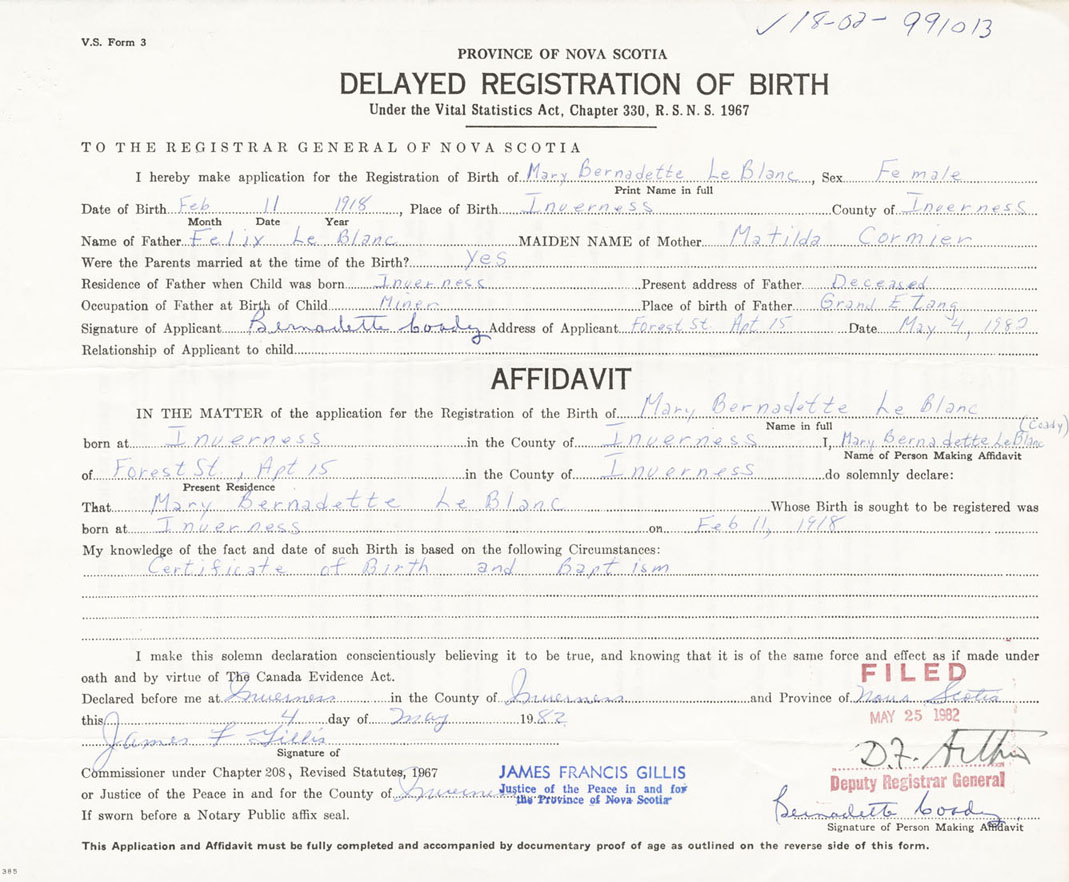 ✓ 18-02-991013
V.S. Form 3
PROVINCE OF NOVA SCOTIA
DELAYED REGISTRATION OF BIRTH
Under the Vital Statistics Act, Chapter 330, R.S.N.S. 1967
TO THE REGISTRAR GENERAL OF NOVA SCOTIA
I hereby make application for the Registration of Birth of Mary Bernadette Le Blanc, Sex Female
Print Name in full
Date of Birth Feb 11 1918, Place of Birth Inverness County of Inverness
Month Date Year
Name of Father Felix Le Blanc MAIDEN NAME of Mother Matilda Cormier
Were the Parents married at the time of the Birth? Yes
Residence of Father when Child was born Inverness Present address of Father Deceased
Occupation of Father at Birth of Child Miner Place of birth of Father Grand Etang
Signature of Applicant Bernadette Coady Address of Applicant Forest St. Apt 15 Date May 4, 1982
Relationship of Applicant to child
AFFIDAVIT
IN THE MATTER of the application for the Registration of the Birth of Mary Bernadette Le Blanc
Name in full (Coady)
born at Inverness in the County of Inverness I, Mary Bernadette Le Blanc
Name of Person Making Affidavit
of Forest St., Apt 15 in the County of Inverness do solemnly declare:
Present Residence
That Mary Bernadette Le Blanc Whose Birth is sought to be registered was
born at Inverness on Feb 11, 1918
My knowledge of the fact and date of such Birth is based on the following Circumstances:
Certificate of Birth and Baptism
I make this solemn declaration conscientiously believing it to be true, and knowing that it is of the same force and effect as if made under
oath and by virtue of The Canada Evidence Act.
FILED
Declared before me at Inverness in the County of Inverness and Province of Nova Scotia
this 4 day of May 1982
MAY 25 1982
James F Gillis
Signature of
D.F.
Commissioner under Chapter 208, Revised Statutes, 1967
JAMES FRANCIS GILLIS
Deputy Registrar General
or Justice of the Peace in and for the County of Inverness
Justice of the Peace in and for
the Province of Nova Scotia
Bernadette Coady
If sworn before a Notary Public affix seal.
Signature of Person Making Affidavit
This Application and Affidavit must be fully completed and accompanied by documentary proof of age as outlined on the reverse side of this form.
385